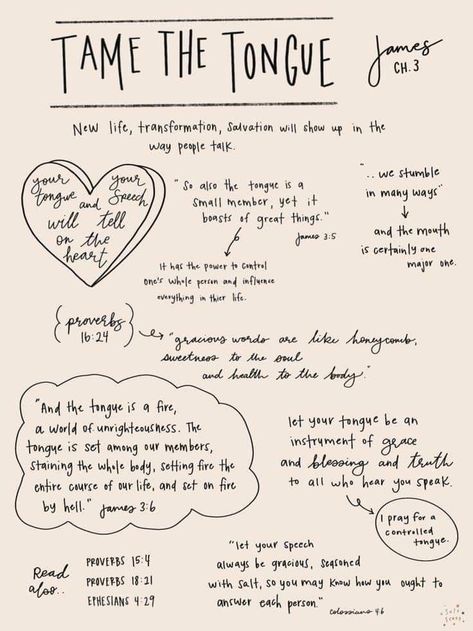 TAME THE TONGUE
James
CH. 3
New life, transformation, salvation will show up in the
way people talk.
your tongue and your speech
will tell
on the
heart
"So also the tongue is a
small member, yet it
boasts of great things."
James 3:5
It has the power to control
one's whole person and influence
everything in thier life.
".. we stumble
in many ways"
and the mouth
is certainly one
major one.
{proverbs
16:24}
"gracious words are like honeycomb,
sweetness to the soul
and health to the body."
"And the tongue is a fire,
a world of unrighteousness. The
tongue is set among our members,
staining the whole body, setting fire the
entire course of our life, and set on fire
by hell." James 3:6
let your tongue be an
instrument of grace
and blessing and truth
to all who hear you speak.
I pray for a
controlled
tongue.
Read
also..
PROVERBS 15:4
PROVERBS 18:21
EPHESIANS 4:29
"let your speech
always be gracious, seasoned
with salt, so you may know how you ought to
answer each person." colossians 4:6